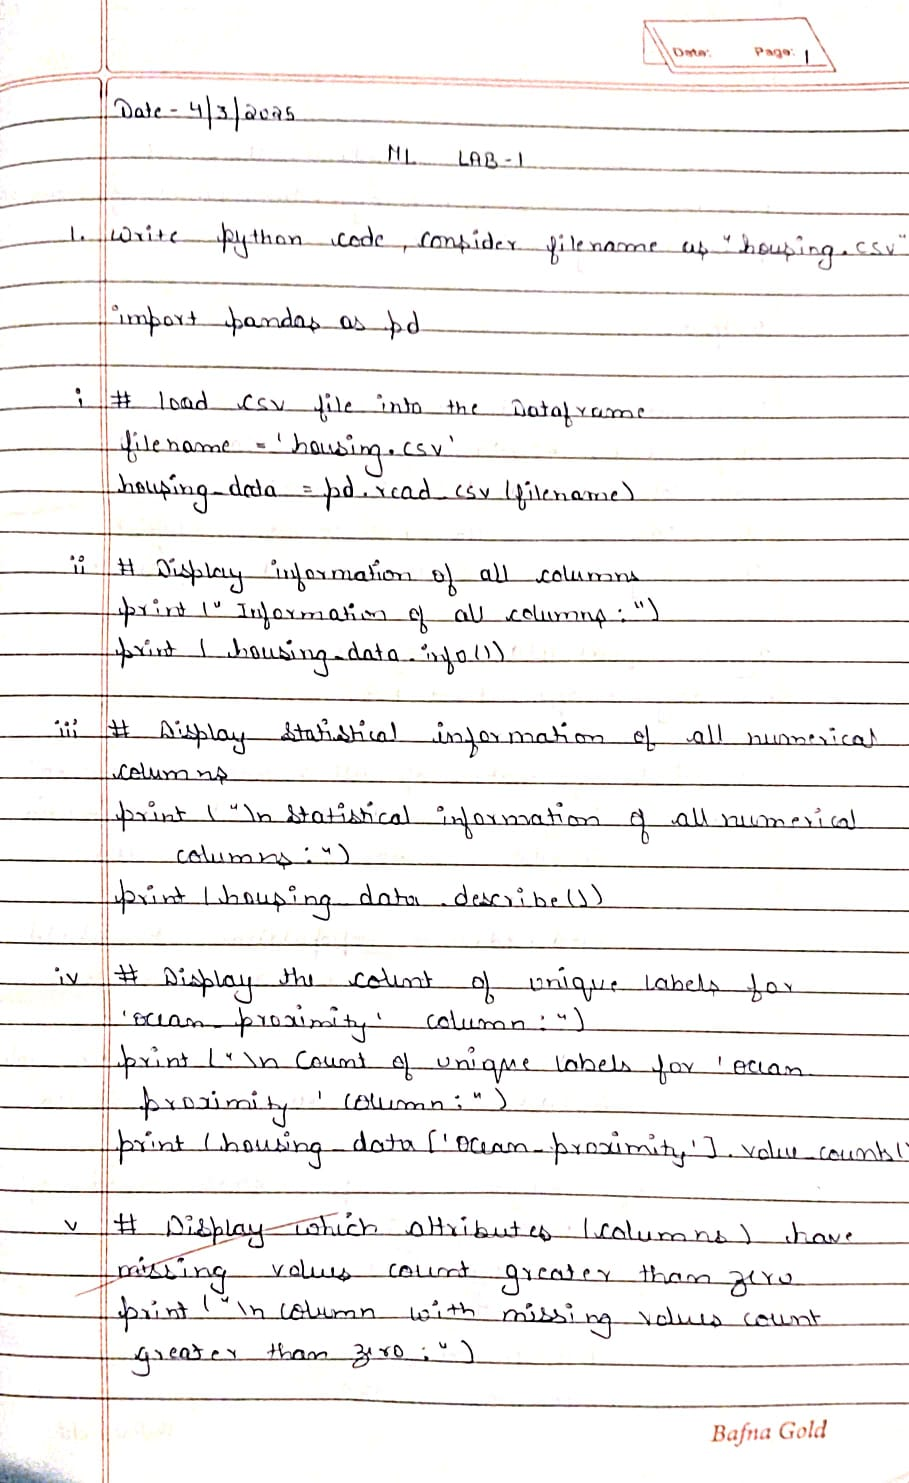 Date: Page: 1
Date - 4/3/2025
ML LAB-1
1. Write python code, consider filename as "housing.csv"
import pandas as pd
i # load csv file into the Dataframe
filename = 'housing.csv'
housing_data = pd.read_csv (filename)
ii # Display information of all columns
print (" Information of all columns : ")
print ( housing_data.info())
iii # Display statistical information of all numerical
columns
print ( "\n statistical information of all numerical
columns : ")
print (housing_data.describe())
iv # Display the count of unique labels for
'ocean_proximity' column : ")
print (" \n Count of unique labels for 'ocean
proximity ' column : " )
print (housing_data ['ocean_proximity'].value_counts()
v # Display which attributes (columns) have
missing values count greater than zero
print ( "\n column with missing values count
greater than zero : ")
Bafna Gold